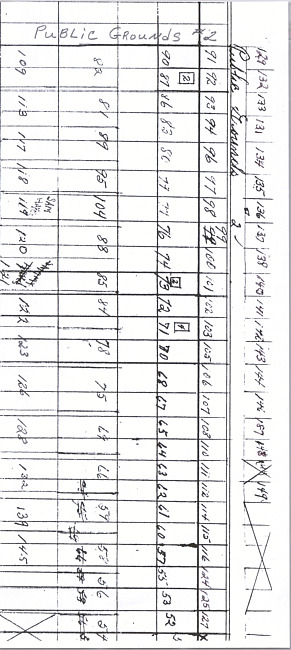 PUBLIC GROUNDS #2
129 132 133 131 134 135 136 137 138 140 141 142 143 144 146 147 148 149
Public Grounds 2
91 92 93 94 96 97 98 99 100 101 102 103 105 106 107 108 110 111 112 114 115 116 124 125 127
90 87 2 86 83 80 77 77 76 74 73 2 72 71 1 70 68 67 65 64 63 62 61 60 57 55 53 52
82 81 89 95 104 88 85 84 78 75 69 66 57 58 56 54
109 113 117 118 119 120 121 122 123 126 128 132 139 145